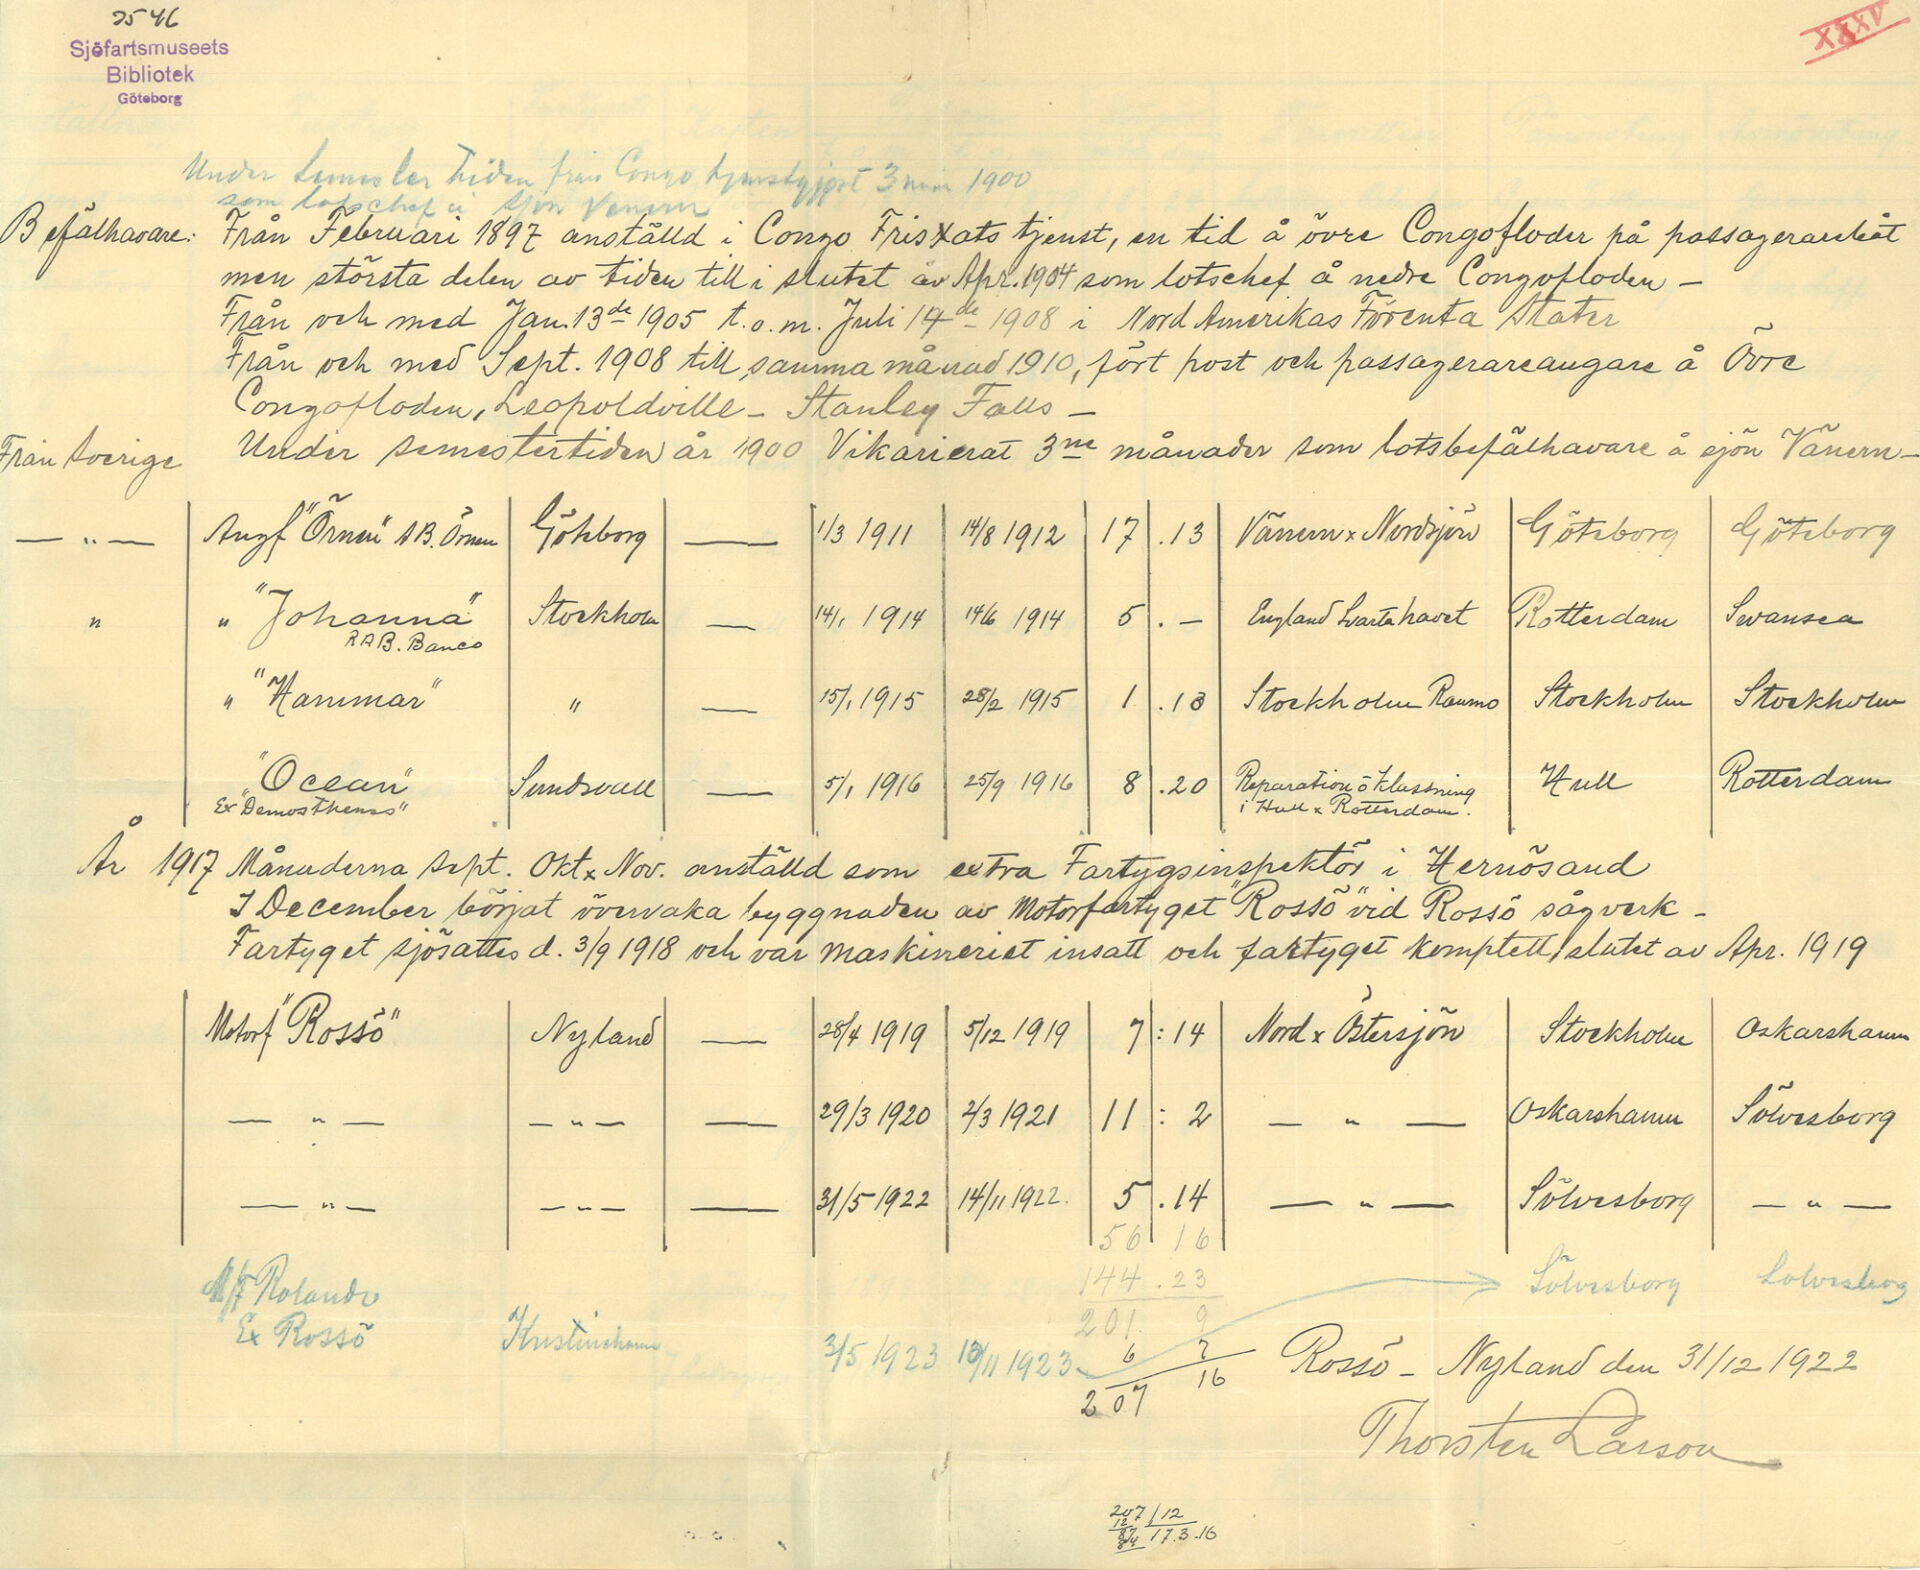 2546
Sjöfartsmuseets
Bibliotek
Göteborg
XXXV
Under Semester tiden från Congo tjenstgjort 3 mån 1900
som lotschef i sjön Venern
Befälhavare: Från Februari 1897 anställd i Congo Fristats tjenst, en tid å övre Congofloder på passagerarebåt
men största delen av tiden till i slutet av Apr. 1904 som lotschef å nedre Congofloden –
Från och med Jan. 13de 1905 t.o.m. Juli 14de 1908 i Nord Amerikas Förenta Stater
Från och med Sept. 1908 till samma månad 1910, fört post och passagerareångare å Övre
Congofloden, Leopoldville – Stanley Falls –
Från Sverige Under semestertiden år 1900 Vikarierat 3ne månader som lotsbefälhavare å sjön Vänern –
— „ — Angf "Örnen" AB. Örnen Göteborg — 1/3 1911 14/8 1912 17 . 13 Vänern x Nordsjön Göteborg Göteborg
„ „ "Johanna" Stockholm — 14/1 1914 14/6 1914 5 . – England Svarta havet Rotterdam Swansea
RAB. Banco
„ "Hammar" „ — 15/1 1915 28/2 1915 1 . 13 Stockholm Raumo Stockholm Stockholm
"Ocean" Sundsvall — 5/1 1916 25/9 1916 8 . 20 Reparation o klassning Hull Rotterdam
Ex "Demosthenes" i Hull x Rotterdam.
År 1917 Månaderna Sept. Okt x Nov. anställd som extra Fartygsinspektör i Hernösand
I December börjat övervaka byggnaden av Motorfartyget "Rossö" vid Rossö sågverk –
Fartyget sjösattes d. 3/9 1918 och var maskineriet insatt och fartyget komplett i slutet av Apr. 1919
Motorf "Rossö" Nyland — 28/4 1919 5/12 1919 7 : 14 Nord x Östersjön Stockholm Oskarshamn
— „ — — „ — — 29/3 1920 2/3 1921 11 : 2 — „ — Oskarshamn Sölvesborg
— „ — — „ — — 31/5 1922 14/11 1922. 5 . 14 — „ — Sölvesborg — „ —
56 16
M/F Rolando 144 . 23 Sölvesborg Sölvesborg
201 9
Ex Rossö Kristinehamn 3/5 1923 13/11 1923 6 7
207 16
Rossö – Nyland den 31/12 1922
Thorsten Larson
207 / 12
12 17.3.16
87
84